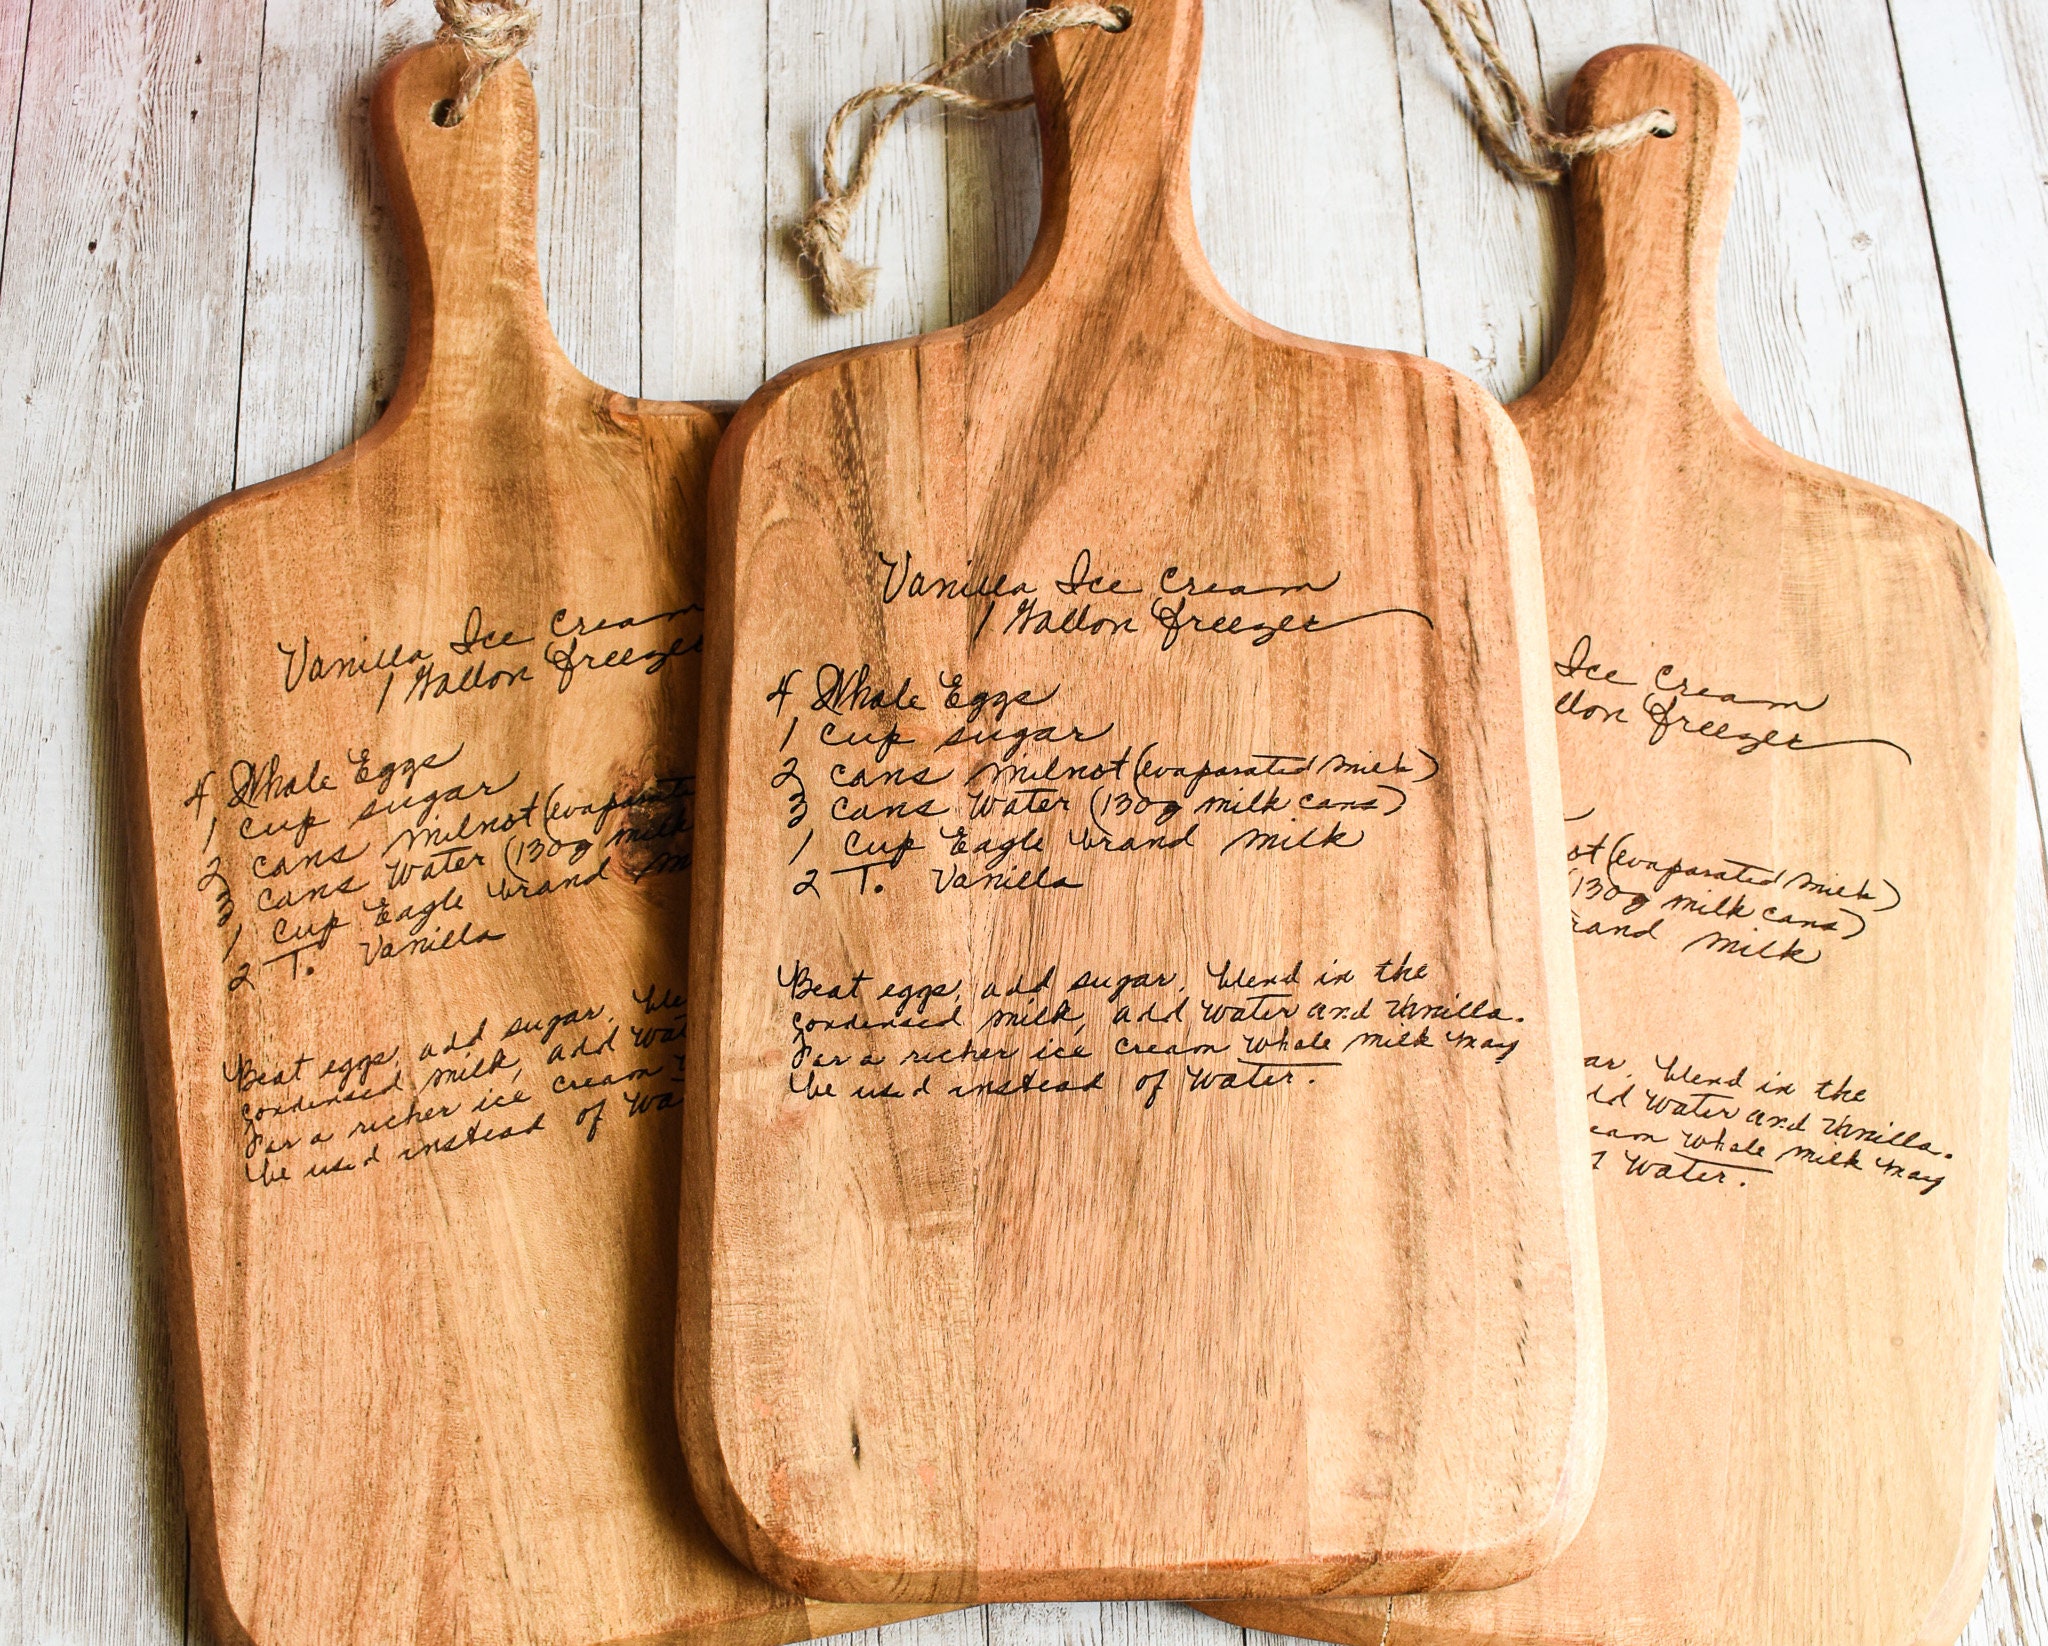 Vanilla Ice Cream
1 Gallon Freezer
4 Whole Eggs
1 cup sugar
2 cans milnot (evaporated milk)
3 cans Water (130g milk cans)
1 Cup Eagle brand milk
2 T. Vanilla
Beat eggs, add sugar. Blend in the
condensed milk, add water and Vanilla.
For a richer ice cream whole milk may
be used instead of water.
Vanilla Ice Cream
1 Gallon Freezer
4 Whole Eggs
1 cup sugar
2 cans milnot (evaporate
3 cans Water (130g milk
1 Cup Eagle brand m
2 T. Vanilla
Beat eggs, add sugar. Ble
condensed milk, add wat
For a richer ice cream
be used instead of wa
Ice Cream
llon Freezer
ot (evaporated milk)
(130g milk cans)
rand milk
ar. Blend in the
dd water and Vanilla.
eam whole milk may
f water.